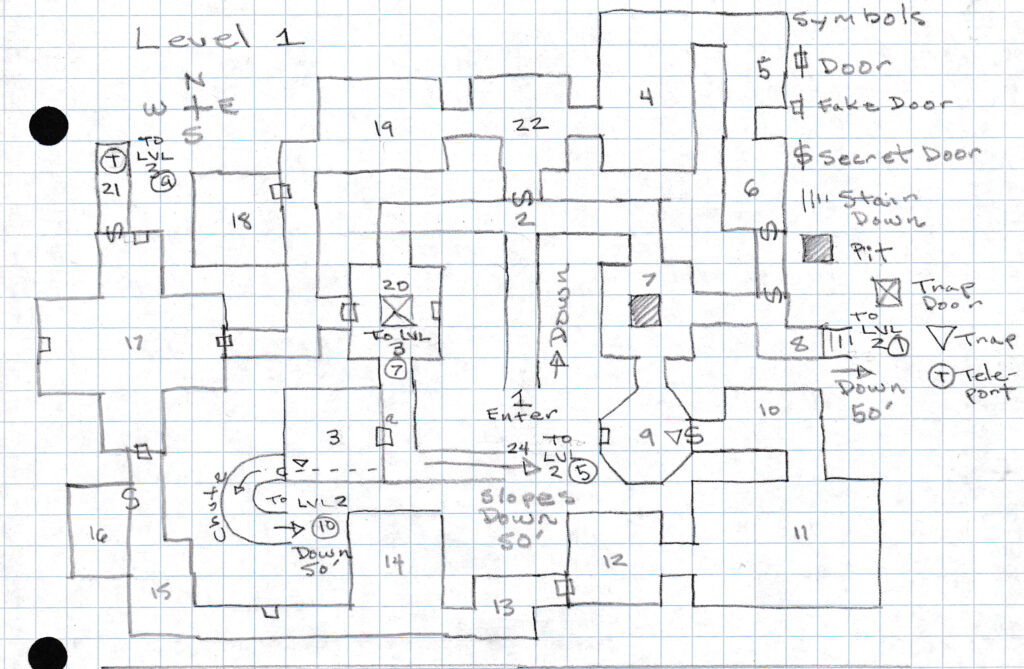 Level 1
N
W E
S
Symbols
Door
Fake Door
Secret Door
Stair
Down
Pit
Trap
Door
Trap
Tele-
port
4
5
19
22
TO
LVL
3
9
T
21
18
S
2
6
S
S
S
20
TO LVL
3
7
7
17
Down
8
TO
LVL
2 1
Down
50'
1
Enter
3
24
TO
LVL
2 5
Slopes
Down
50'
9
S
10
S
16
To LVL 2
10
Down
50'
14
12
11
15
13